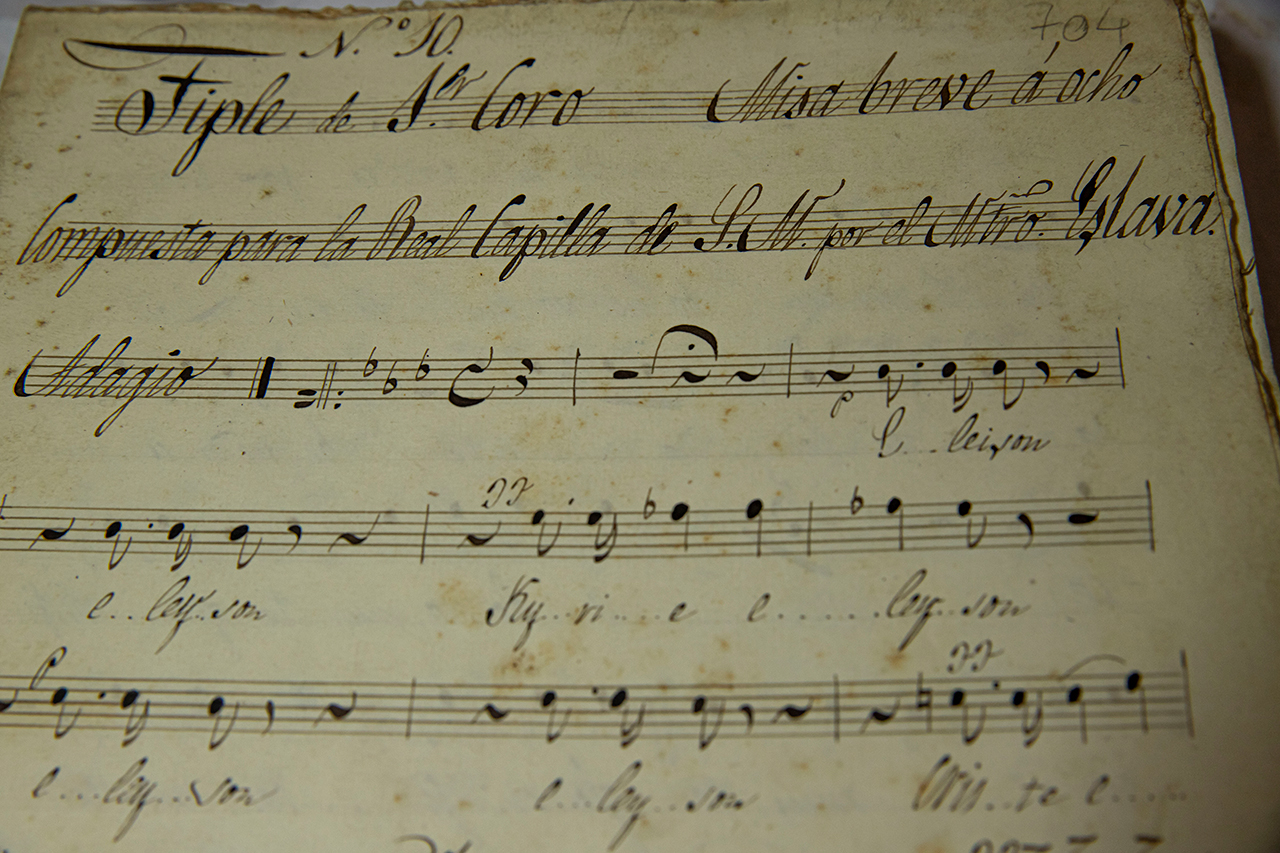 N.º 10.
704
Tiple de 1.er Coro Misa breve á ocho
Compuesta para la Real Capilla de S. M. por el Mtrô. Eslava.
Adagio
p
E...leison
ff
e..ley..son Ky..ri...e e......ley..son
p ff
e...ley...son e...ley..son Cris..te e.....